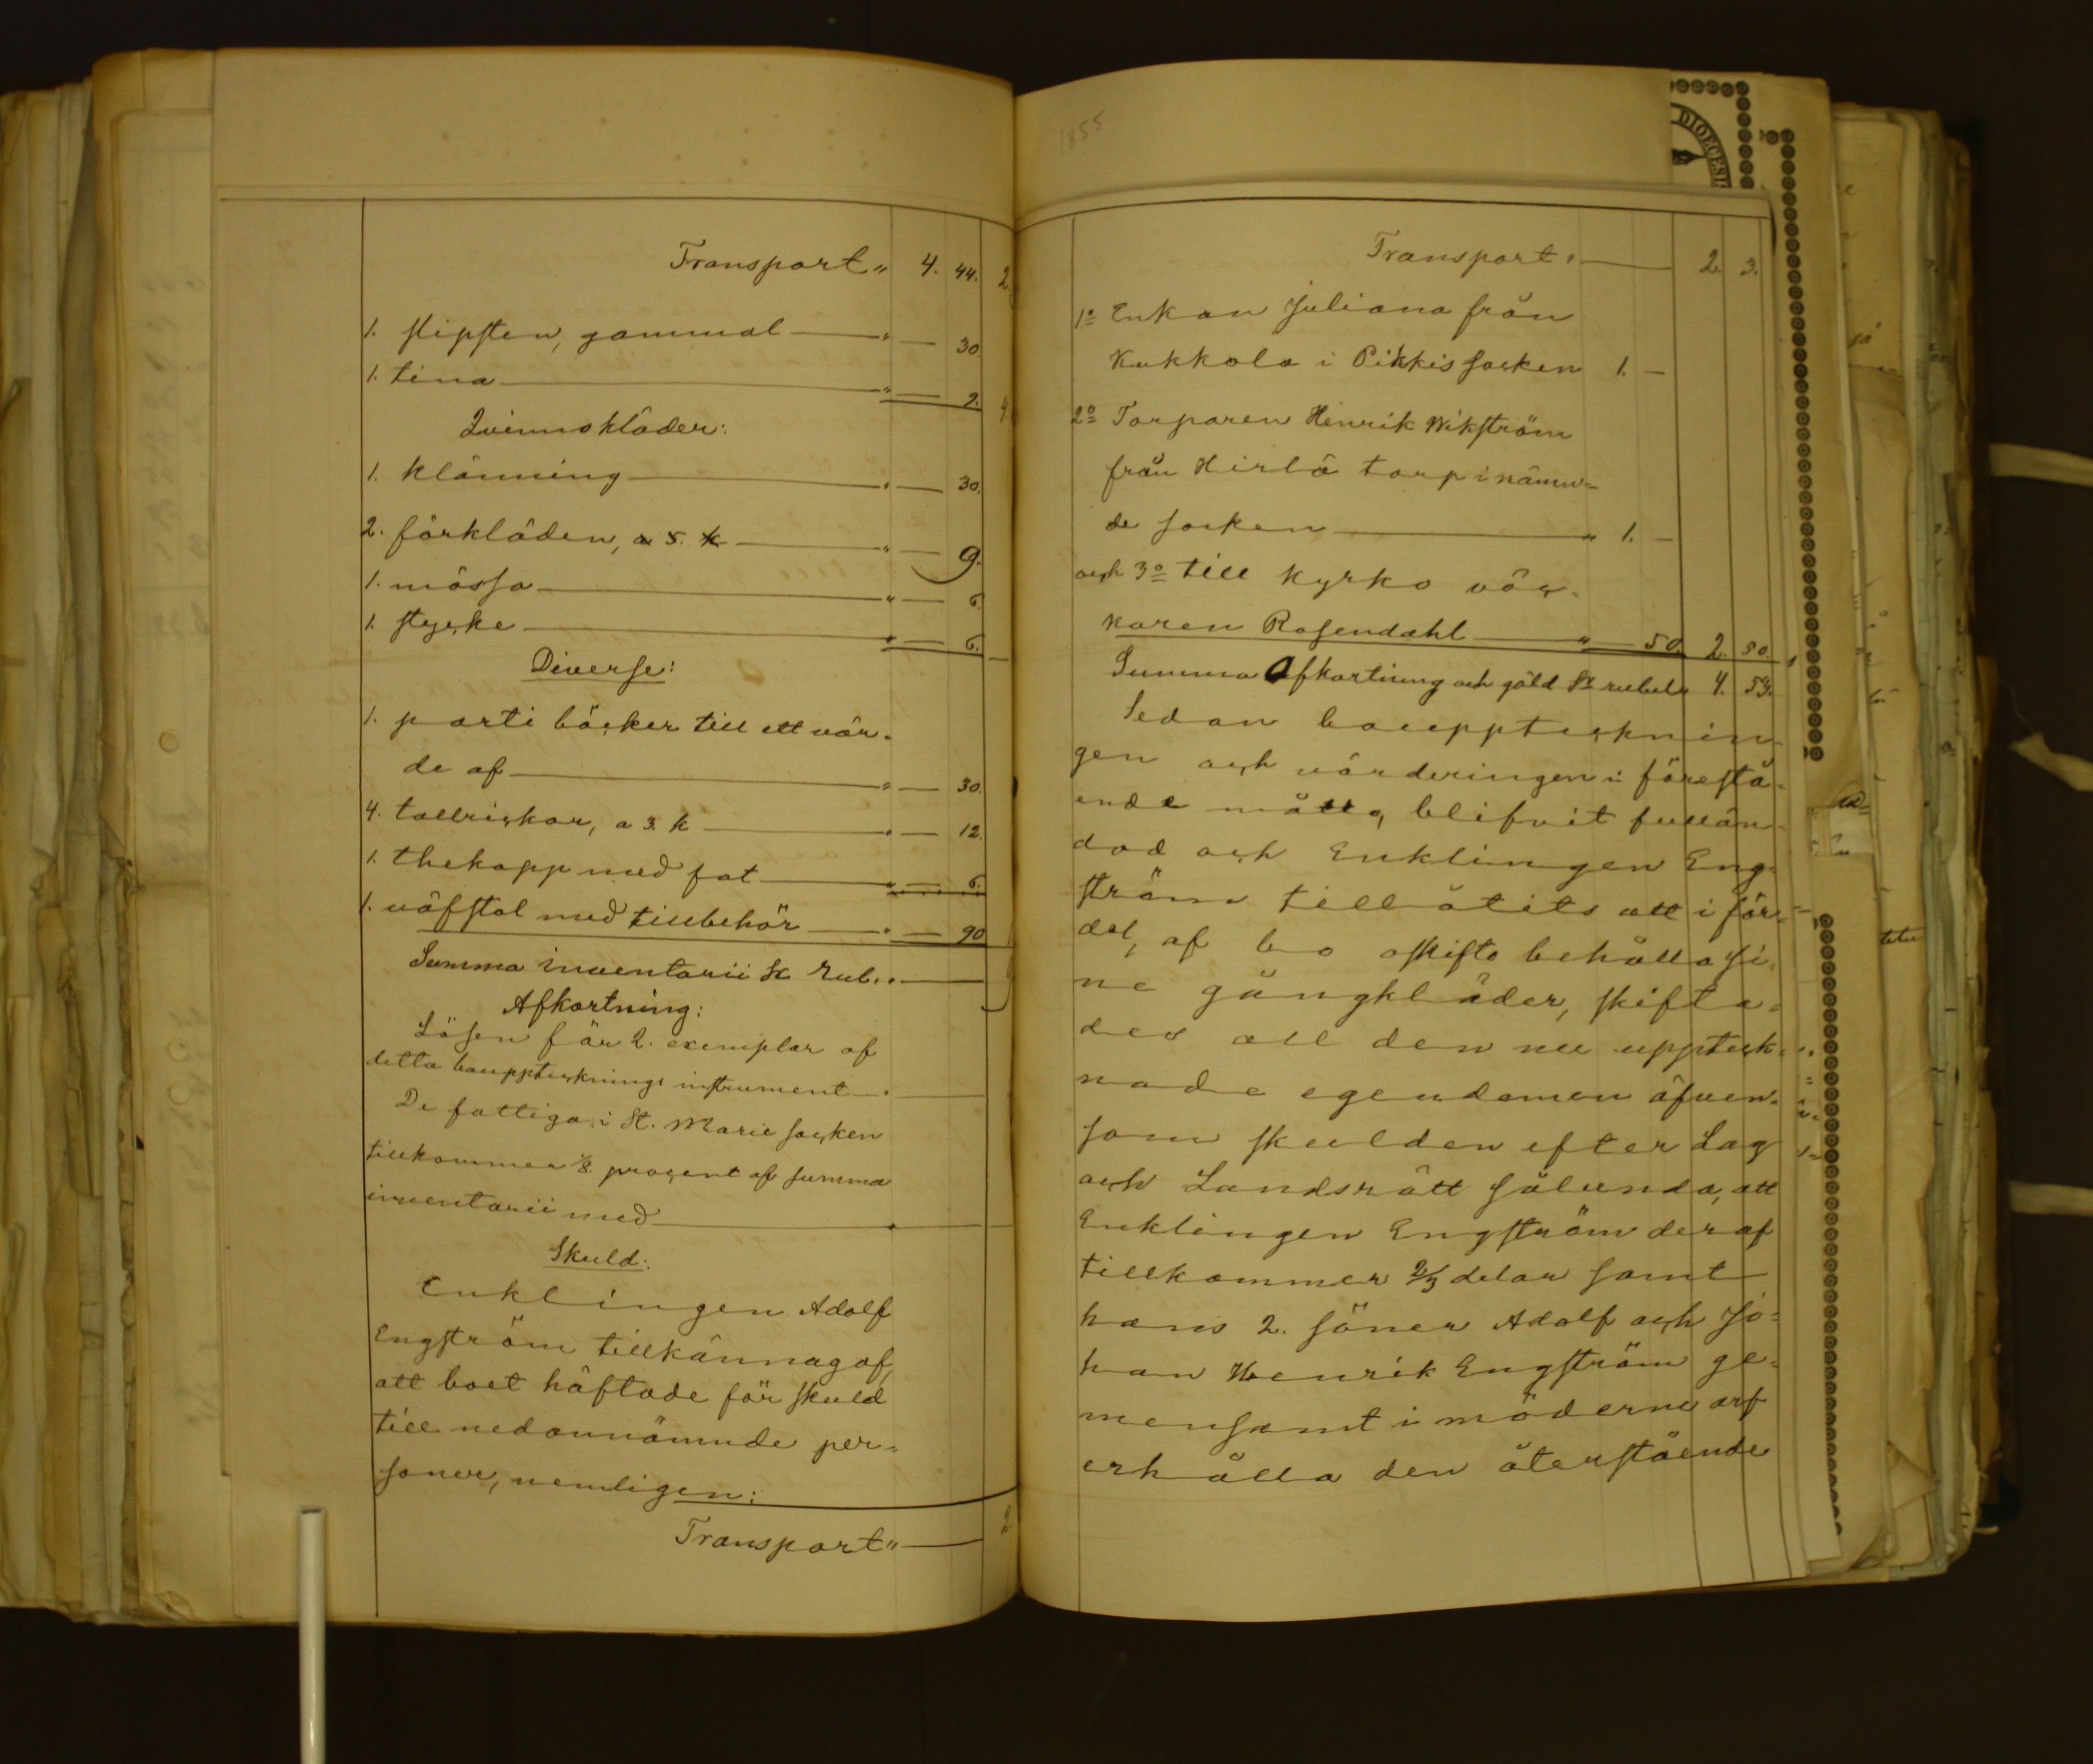 Transport „ 4. 44. 2.
1. slipsten, gammal — „ — 30.
1. tina — „ — 2. 4.
Qvinnokläder:
1. klänning — „ — 30.
2. förkläden, a 5. k — „ — 9.
1. mössa — „ — 6.
1. stycke — „ — 6. —
Diverse:
1. parti böcker till ett vär-
de af — „ — 30.
4. tallrickar, a 3. k — „ — 12.
1. thekopp med fat — „ — 6.
1. väfstol med tillbehör — „ — 90
Summa inventarii Sr Rub. „ —
Afkortning:
Lösen för 2. exemplar af
detta bouppteckningsinstrument — „
De fattiga i St. Marie socken
tillkommer 1/8. procent af summa
inventarii med — „
Skuld:
Enklingen Adolf
Engström tillkännagaf,
att boet häftade för skuld
till nedannämnde per=
soner, nemligen:
Transport „ — 2.
1855
DIOECESIS
Transport „ — 2. 3.
1º Enkan Juliana från
Kukkola i Pikkis socken 1. —
2º Torparen Henrik Wikström
från Hirlä torp i nämn=
de socken — „ 1. —
och 3º till kyrko väc-
karen Rosendahl — „ 50. 2. 50.
Summa Afkortning och gäld Sr rubel „ 4. 53.
Sedan boupptecknin-
gen och värderingen i förestå-
ende måtto, blifvit fullän-
dad och Enklingen Eng-
ström tillåtits att i för-
del, af bo oskifto behålla si-
ne gångkläder, skifta-
des all den nu uppteck-
nade egendomen äfven-
som skulden efter Lag
och Landsrätt sålunda, att
Enklingen Engström deraf
tillkommer 2/3 delar samt
hans 2. söner Adolf och Jo=
han Henrik Engström ge-
mensamt i möderne arf
erhålla den återstående